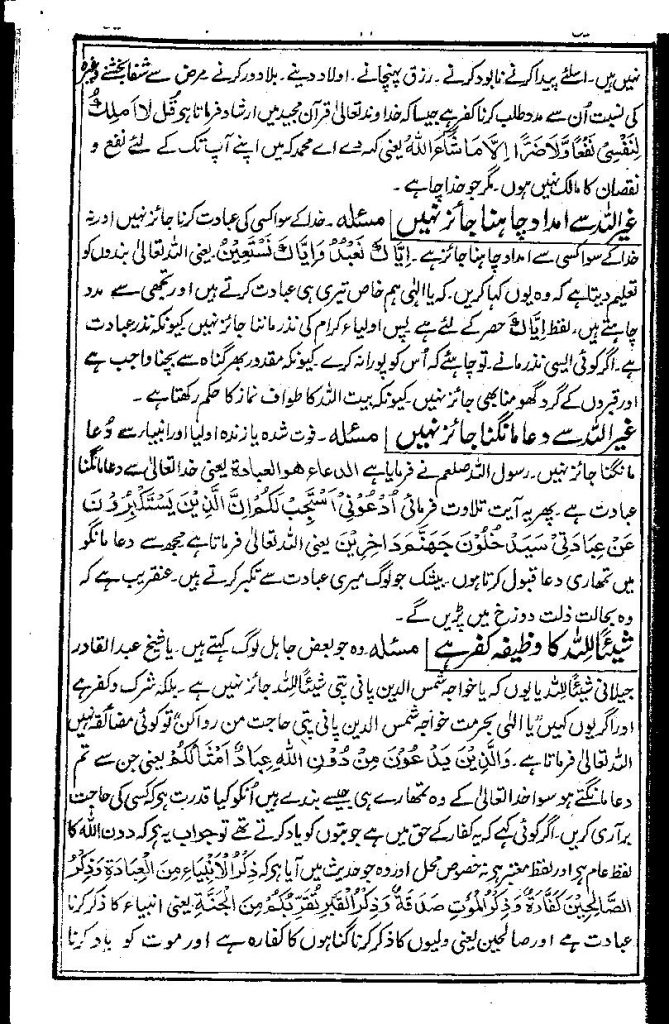 نہیں ہیں۔ اسلئے پیدا کرنے نابود کرنے۔ رزق پہنچانے۔ اولاد دینے۔ بلا دور کرنے مرض سے شفا بخشنے وغیرہ
کی نسبت اُن سے مدد طلب کرنا کفر ہے جیسا کہ خداوند تعالیٰ قرآن مجید میں ارشاد فرماتا ہی قُل لَا اَمْلِكُ
لِنَفْسِیْ نَفْعًا وَّلَا ضَرًّا اِلَّا مَا شَآءَ اللهُ یعنی کہدے اے محمد کہ میں اپنے آپ تک کے لئے نفع و
نقصان کا مالک نہیں ہوں۔ مگر جو خدا چاہے۔
غیر اللہ سے امداد چاہنا جائز نہیں مسئلہ۔ خدا کے سوا کسی کی عبادت کرنا جائز نہیں اور نہ
خدا کے سوا کسی سے امداد چاہنا جائز ہے۔ اِیَّاكَ نَعْبُدُ وَاِیَّاكَ نَسْتَعِیْنُ یعنی اللہ تعالیٰ بندوں کو
تعلیم دیتا ہے کہ وہ یوں کہا کریں۔ کہ یا الٰہی ہم خاص تیری ہی عبادت کرتے ہیں اور تجھی سے مدد
چاہتے ہیں۔ لفظ اِیَّاكَ حصر کے لئے ہے پس اولیاء کرام کی نذر ماننا جائز نہیں کیونکہ نذر عبادت
ہے۔ اگر کوئی ایسی نذر مانے۔ تو چاہئے کہ اُس کو پورا نہ کرے۔ کیونکہ مقدور بھر گناہ سے بچنا واجب ہے
اور قبروں کے گرد گھومنا بھی جائز نہیں۔ کیونکہ بیت اللہ کا طواف نماز کا حکم رکھتا ہے۔
غیر اللہ سے دعا مانگنا جائز نہیں مسئلہ۔ فوت شدہ یا زندہ اولیا اور انبیا سے دُعا
مانگنا جائز نہیں۔ رسول اللہ صلعم نے فرمایا ہے الدعاء هو العبادة یعنی خدا تعالیٰ سے دعا مانگنا
عبادت ہے۔ پھر یہ آیت تلاوت فرمائی اُدْعُوْنِیْ اَسْتَجِبْ لَكُمْ اِنَّ الَّذِیْنَ یَسْتَكْبِرُوْنَ
عَنْ عِبَادَتِیْ سَیَدْخُلُوْنَ جَهَنَّمَ دَاخِرِیْنَ یعنی اللہ تعالیٰ فرماتا ہے مجھ سے دعا مانگو
میں تمھاری دعا قبول کرتا ہوں۔ بیشک جو لوگ میری عبادت سے تکبر کرتے ہیں۔ عنقریب ہے کہ
وہ بحالت ذلت دوزخ میں پڑیں گے۔
شَیْئًا لِلّٰہ کا وظیفہ کفر ہے مسئلہ۔ وہ جو بعض جاہل لوگ کہتے ہیں۔ یا شیخ عبد القادر
جیلانی شَیْئًا لِلّٰہ یا یوں کہ یا خواجہ شمس الدین پانی پتی شَیْئًا لِلّٰہ جائز نہیں ہے۔ بلکہ شرک و کفر ہے
اور اگر یوں کہیں یا الٰہی بحرمت خواجہ شمس الدین پانی پتی حاجت من روا کن تو کوئی مضائقہ نہیں
اللہ تعالیٰ فرماتا ہے۔ وَالَّذِیْنَ یَدْعُوْنَ مِنْ دُوْنِ اللهِ عِبَادٌ اَمْثَالُكُمْ یعنی جن سے تم
دعا مانگتے ہو سوا خدا تعالیٰ کے وہ تمھارے ہی جیسے بندے ہیں اُنکو کیا قدرت ہی کہ کسی کی حاجت
برآری کریں۔ اگر کوئی کہے کہ یہ کفار کے حق میں ہے جو بتوں کو یاد کرتے تھے تو جواب یہ ہی کہ دون اللہ کا
لفظ عام ہی اور لفظ معتبر ہی نہ خصوص محل اور وہ جو حدیث میں آیا ہی کہ ذِكْرُ الْاَنْبِیَاءِ مِنَ الْعِبَادَةِ وَذِكْرُ
الصَّالِحِیْنَ كَفَّارَةٌ وَذِكْرُ الْمَوْتِ صَدَقَةٌ وَذِكْرُ الْقَبْرِ یُقَرِّبُكُمْ مِنَ الْجَنَّةِ یعنی انبیاء کا ذکر کرنا
عبادت ہے اور صالحین یعنی ولیوں کا ذکر کرنا گناہوں کا کفارہ ہے اور موت کو یاد کرنا